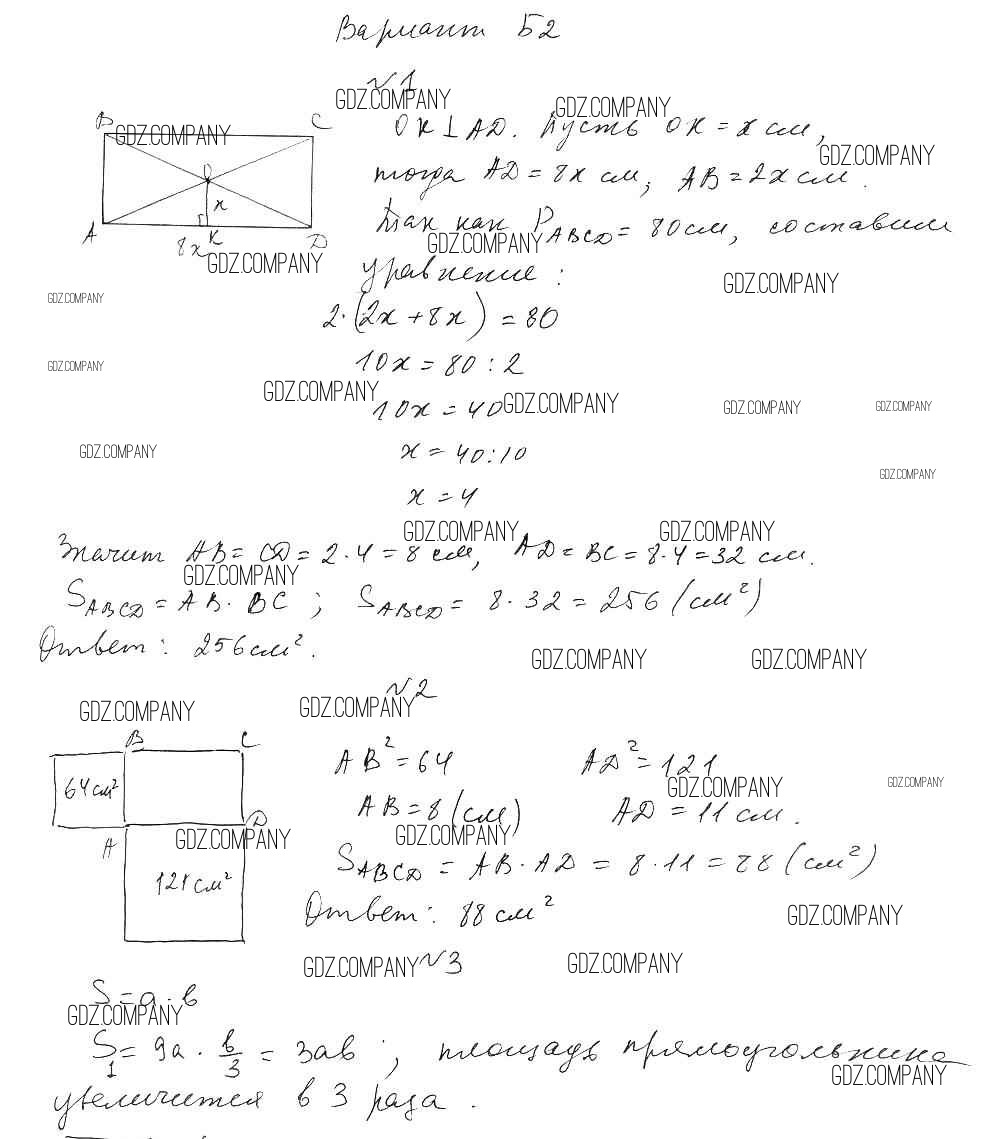 Вариант Б2
№1
B C
O
x
A 8x K D
OK ⊥ AD. Пусть OK = x см,
тогда AD = 8x см, AB = 2x см.
Так как P_ABCD = 80см, составим
уравнение:
2·(2x + 8x) = 80
10x = 80 : 2
10x = 40
x = 40:10
x = 4
Значит AB = CD = 2·4 = 8 см, AD = BC = 8·4 = 32 см.
S_ABCD = AB · BC ; S_ABCD = 8·32 = 256 (см²)
Ответ: 256см².
№2
B C
64см²
A D
121см²
AB² = 64 AD² = 121
AB = 8 (см) AD = 11 см.
S_ABCD = AB·AD = 8·11 = 88 (см²)
Ответ: 88 см²
№3
S = a·в
S₁ = 9a · в/3 = 3aв ; площадь прямоугольника
увеличится в 3 раза.
GDZ.COMPANY